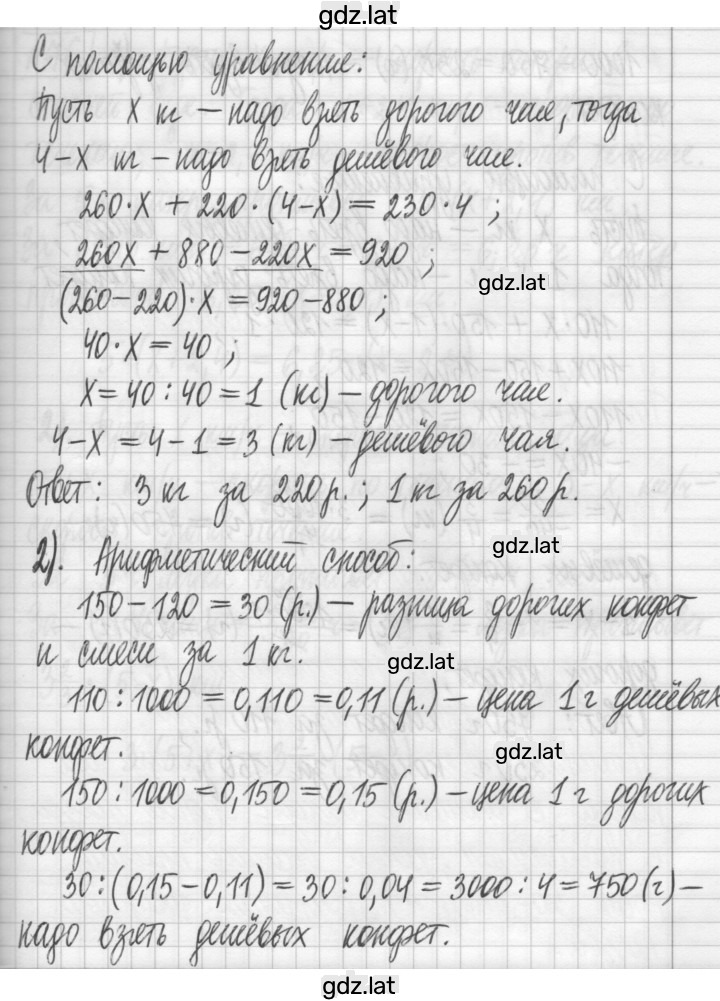 gdz.lat
С помощью уравнение:
Пусть х кг – надо взять дорогого чая, тогда
4-х кг – надо взять дешёвого чая.
260·х + 220·(4-х) = 230·4 ;
260х + 880 - 220х = 920 ;
gdz.lat
(260-220)·х = 920-880 ;
40·х = 40 ;
х = 40 : 40 = 1 (кг) – дорогого чая.
4-х = 4-1 = 3 (кг) – дешёвого чая.
Ответ: 3 кг за 220 р. ; 1 кг за 260 р.
gdz.lat
2). Арифметический способ:
150-120 = 30 (р.) – разница дорогих конфет
и смеси за 1 кг.
gdz.lat
110 : 1000 = 0,110 = 0,11 (р.) – цена 1 г дешёвых
конфет.
gdz.lat
150 : 1000 = 0,150 = 0,15 (р.) – цена 1 г дорогих
конфет.
30 : (0,15-0,11) = 30 : 0,04 = 3000 : 4 = 750 (г) –
надо взять дешёвых конфет.
gdz.lat